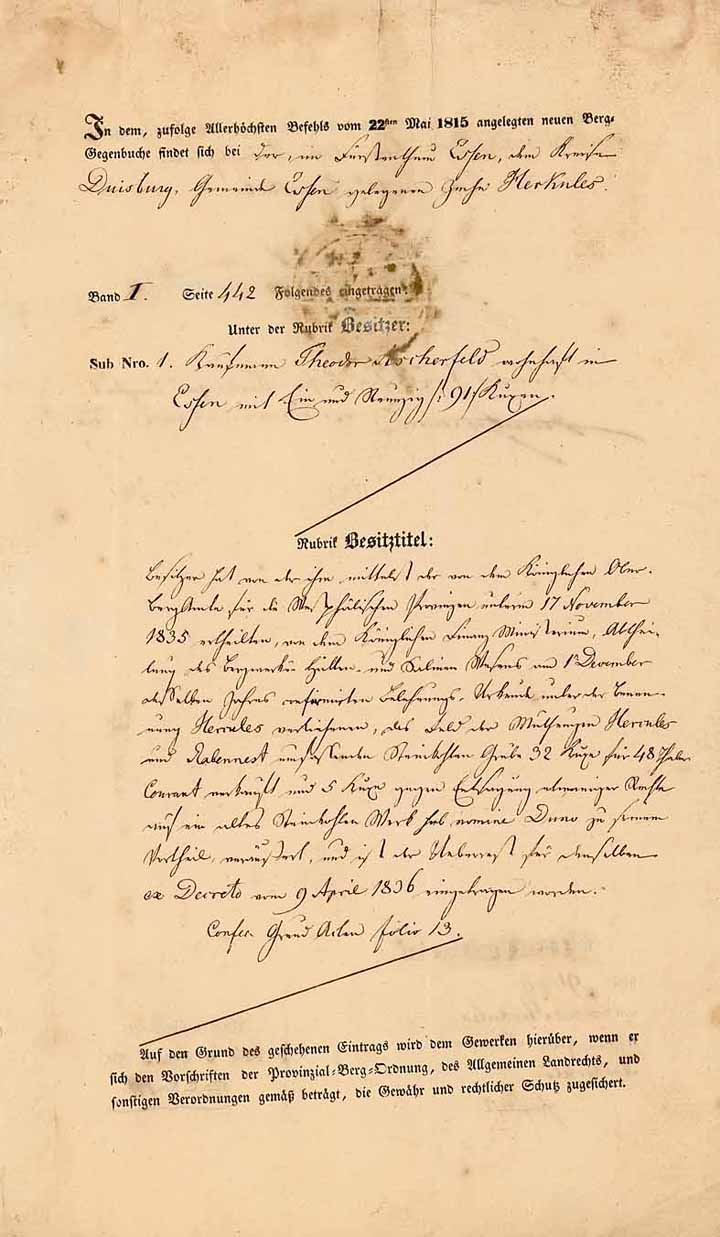 In dem, zufolge Allerhöchsten Befehls vom 22sten Mai 1815 angelegten neuen Berg-
Gegenbuche findet sich bei der, im Fürstenthum Essen, dem Kreise
Duisburg, Gemeinde Essen gelegenen Zeche Herkules.
Band I. Seite 442 Folgendes eingetragen:
Unter der Rubrik Besitzer:
Sub Nro. 1. Kaufmann Theodor Ascherfeld wohnhaft in
Essen mit Ein und Neunzig /: 91 / Kuxen.
Rubrik Besitztitel:
Besitzer hat von der ihm mittelst der von dem Königlichen Ober-
bergAmte für die Westphälischen Provinzen unterm 17 November
1835 ertheilten, von dem Königlichen Finanz Ministerium, Abthei-
lung des Bergwerks- Hütten- und Salinen Wesens am 1 December
desselben Jahres confirmirten Belehnungs- Urkunde unter der Benen-
nung Hercules verliehenen, das Feld der Muthungen Hercules
und Rabennest umfassenden Steinkohlen Grube 32 Kuxe für 48 Thaler
Courant verkauft und 5 Kuxe gegen Entsagung etwaniger Rechte
auf ein altes Steinkohlen Werk sub nomine Duno zu seinem
Vortheil, veräußert, und ist der Ueberrest für denselben
ex Decreto vom 9 April 1836 eingetragen worden.
Confer. Grund Acten folio 13.
Auf den Grund des geschehenen Eintrags wird dem Gewerken hierüber, wenn er
sich den Vorschriften der Provinzial-Berg-Ordnung, des Allgemeinen Landrechts, und
sonstigen Verordnungen gemäß beträgt, die Gewähr und rechtlicher Schutz zugesichert.